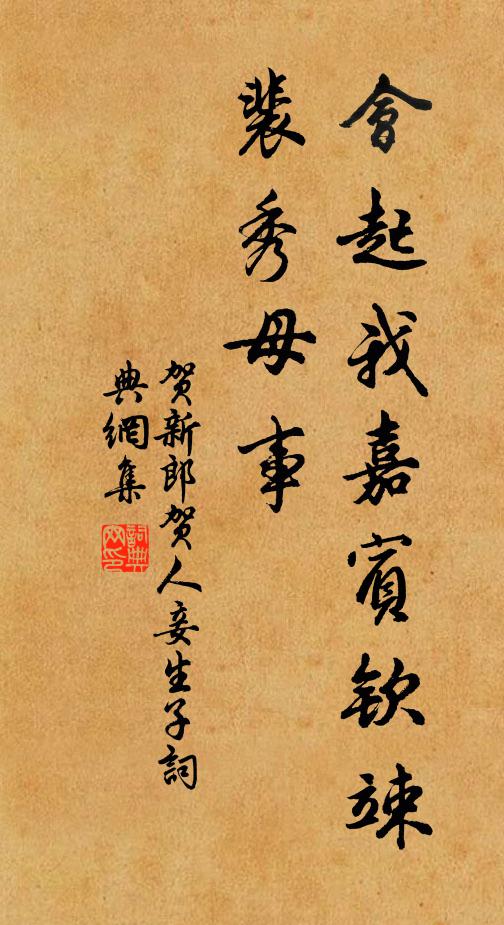 會起我嘉賓欽竦
裴秀母事
贺新郎贺人妾生子詞
典網集
詞典
网印